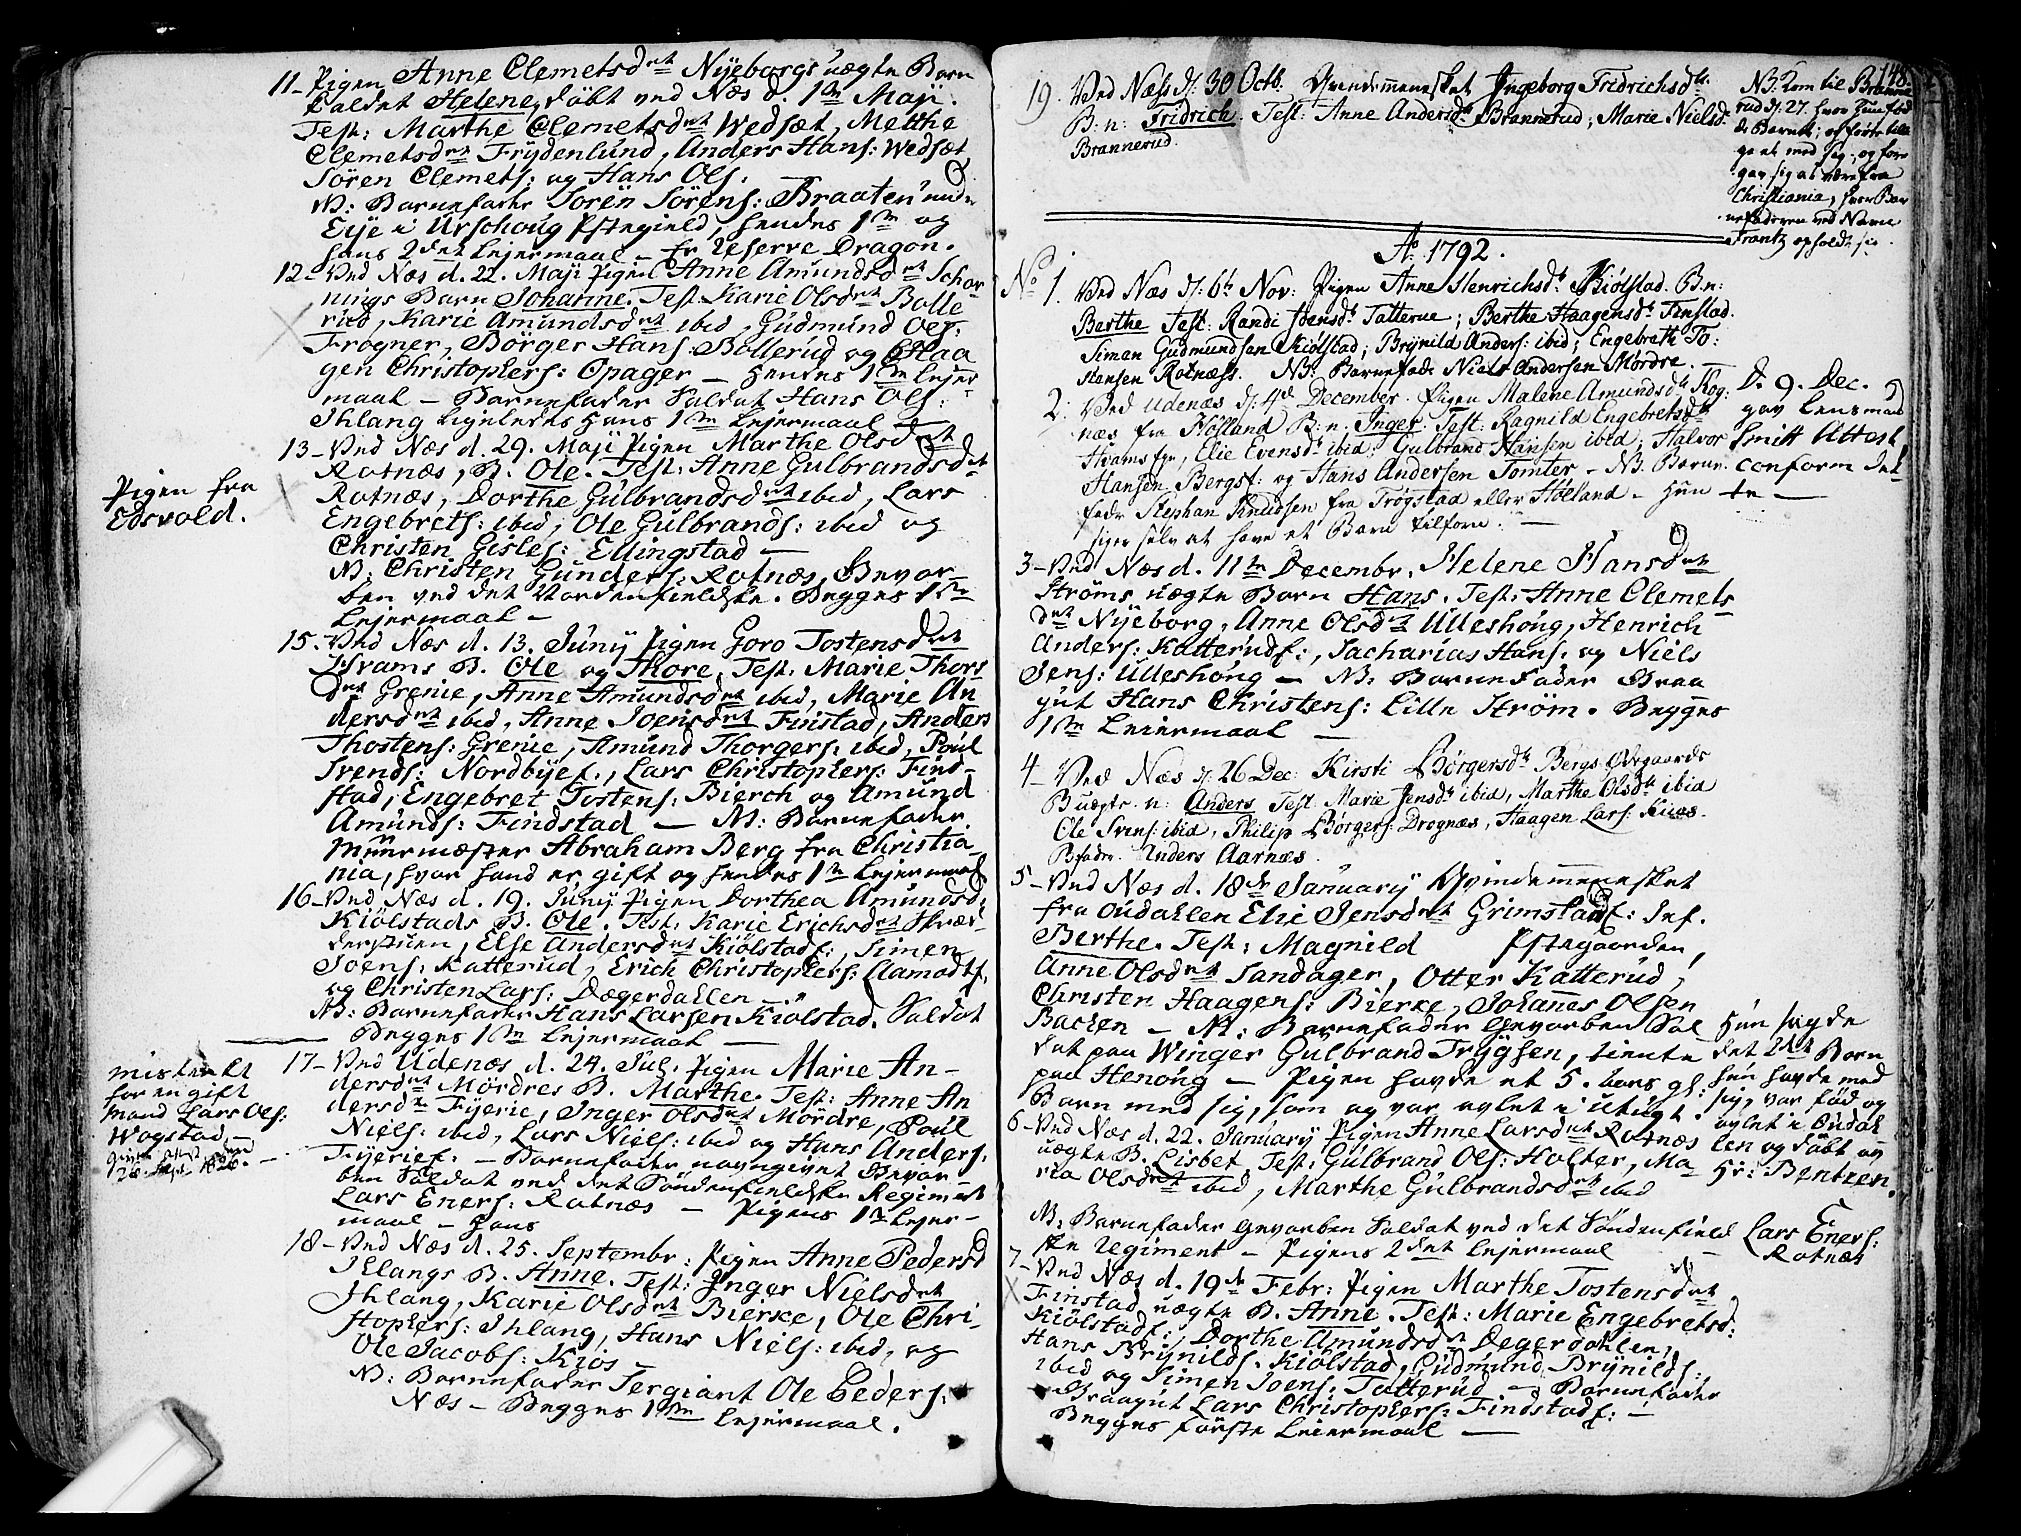 11- Pigen Anne Clemetsdrt Nÿeborgs uægte Barn
kaldet Helene, døbt ved Næs d. 1te Maji.
Test: Marthe Clemetsdrt Wedsæt, Mette
Clemetsdrt Frÿdenlund, Anders Hans: Wedsæt
Sören Clemets: og Hans Ols.
NB: Barnefader Sören Sörens: Braaten under
Eÿe i Urschoug Pstegield, hendes 1te og
hans 2det Lejermaal - fr Reserve Dragon.
12- Ved Næs d. 22. Maji Pigen Anne Amundsdrt Schor-
nings Barn Johanne. Test: Karie Olsdrt Bolle
rud, Karie Amundsdrt ibid, Gudmund Ols:
Frogner, Börger Hans: Bollerud og Haa
gen Christophers: Opager - hendes 1te Lejer
maal - Barnefader Soldat Hans Ols:
Ihlang ligeledes hans 1te Lejermaal -
13- Ved Næs d. 29. Maji Pigen Marthe Olsdrt
Rotnæs, B. Ole. Test: Anne Gulbrandsdrt
Rotnæs, Dorthe Gulbrandsdrt ibid, Lars
Engebrets: ibid, Ole Gulbrands: ibid og
Christen Gisles: Ellingstad -
NB: Christen Gunders: Rotnæs, Gevor-
ben ved det Nordenfieldske. Begges 1te
Lejermaal -
Pigen fra
Edsvold.
15. Ved Næs d. 13. Junÿ Pigen Goro Tostensdrt
Hrams B. Ole og Thore, Test: Marie Thors
drt Grenie, Anne Amundsdrt ibid, Marie An
dersdrt ibid, Anne Joensdrt Finstad, Anders
Thostens: Grenie, Amund Thorgers: ibid, Poul
Svends: Nordbÿef., Lars Christophers: Find-
stad, Engebret Tostens: Bierch og Amund
Amunds: Findstad - NB: Barnefader
Muurmester Abraham Berg fra Christia-
nia, hvor hand er gift og hendes 1te Lejermaal
16- Ved Næs d. 19. Junÿ Pigen Dorthea Amundsd:
Kiölstads B. Ole. Test: Karie Erichsdrt Skræd
derstuen, Else Andersdrt Kiölstadf., Simen
Joens: Katterud, Erich Christophers: Aamodtf.
og Christen Lars: Dægerdahlen -
NB: Barnefader Hans Larsen Kiölstad. Soldat
Begges 1te Lejermaal -
17- Ved Udenæs d. 24. Jul. Pigen Marie An-
dersdrt Mördres B. Marthe. Test: Anne An
dersdrt Fÿerie, Inger Olsdrt Mördre, Poul
Niels: ibid, Lars Niels: ibid og Hans Anders:
Fÿerief. - Barnefader navngivet Gevor-
ben Soldat ved det Söndenfieldske Regiment
Lars Eners: Rotnæs - Pigens 1te Lejer-
maal - hans
mistænkt
for en gift
Mand Lars Ols:
Wogstad -
18- Ved Næs d. 25. Septembr: Pigen Anne Pedersd
Ihlangs B. Anne. Test: Inger Nielsdrt
Ihlang, Karie Olsdrt Bierke, Ole Chri-
stophers: Ihlang, Hans Niels: ibid, og
Ole Jacobs: Kiös -
NB: Barnefader Sergiant Ole Peders:
Næs - Begges 1te Lejermaal.
148
19. Ved Næss d: 30 Octb. Qvindemennesket Ingeborg Fridrichsdt:
B: n: Fridrich. Test: Anne Andersdt Brannerud; Marie Nielsd.
Brannerud.
NB: kom til Branne
rud d: 27. hvor hun fød
de Barnet; og førte tilba
ge et med sig, og fore
gav sig at være fra
Christiania, hvor Bar
nefaderen ved Navn
Frantz opholdt sig.
Ao 1792.
No 1. Ved Næs d: 6te Nov: Pigen Anne Henrichsdt Kiölstad. B: n:
Berthe Test: Randi Joensdt Tatterue; Berthe Haagensdt Finstad.
Simen Gudmundsen Kiölstad; Brynild Anders: ibid; Engebreth To:
stensen Rotnæss. NB: Barnefader Niels Andersen Mordre.
2. Ved Udenæs d: 4de December. Pigen Malene Amundsdt Rog:
næs fra Hølland B: n: Inger. Test: Ragnild Engebretsdt
Hramsfge, Elie Evensdt ibid; Gulbrand Hansen ibid; Halvor
Hansen Bergsf: og Hans Andersen Tomter - NB. Barne
fader Stephan Knudsen fra Trøgstad eller Hølland - hun
siger selv at have et Barn tilforn. -
D. 9. Dec.
gav Lensmand
Smitt Attest,
conform det
te -
3- Ved Næs d. 11te Decembr. Helene Hansdrt
Ströms uægte Barn Hans. Test: Anne Clemets
drt Nÿeborg, Anne Olsdrt Ulleshoug, Henrich
Anders: Katterudf:, Zacharias Hans: og Niels
Jens: Ulleshoug - NB: Barnefader Braa
gut Hans Christens: Lille Ström. Begges
1te Leiermaal -
4- Ved Næs d: 26 Dec: Kirsti Børgersdt Bergs Østgaards
B uægte. n: Anders Test: Marie Jensdt ibid, Marthe Olsdt ibid
Ole Svens: ibid, Philip Børgers: Drognæs, Haagen Lars: Kiøs.
Bfader. Anders Aarnæs.
5- Ved Næs d. 18de Januarÿ Qvindemennesket
fra Oudahlen Elie Jensdrt Grimstadf: Inf.
Berthe. Test: Magnild Pstegaarden,
Anne Olsdrt Sandager, Otter Katterud,
Christen Haagens: Bierke, Johannes Olsen
Bachen - NB: Barnefader Gevorben Sol
dat paa Winger Gulbrand Trÿgsen, tiente
paa Henoug - Pigen havde et 5. aars gl:
Barn med sig, som og var avlet i Utugt.
Hun sagde
det 2det Barn
hun havde med
sig, var fød og
avlet i Oudah
len og døbt av
Hr: Bentzen.
6- Ved Næs d. 22. Januarÿ Pigen Anne Larsdrt Rotnæs
uægte B. Lisbet, Test: Gulbrand Ols: Holter, Ma
ria Olsdrt ibid, Marthe Gulbrandsdrt ibid
NB: Barnefader Gevorben Soldat ved det Söndenfield
ske Regiment - Pigens 2det Lejermaal -
Lars Eners:
Rotnæs
7- Ved Næs d. 19de Febr: Pigen Marthe Tostensdrt
Finstad uægte B. Anne. Test: Marie Engebretsd:
Kiölstadf:, Dorthe Amundsdrt Degerdahlen,
Hans Brÿnilds. Kiölstad, Gudmund Brÿnilds:
ibid og Simen Joens: Tatterud. - Barnefader
Braagut Lars Christophers: Findstadf: -
Begges förste Leiermaal -